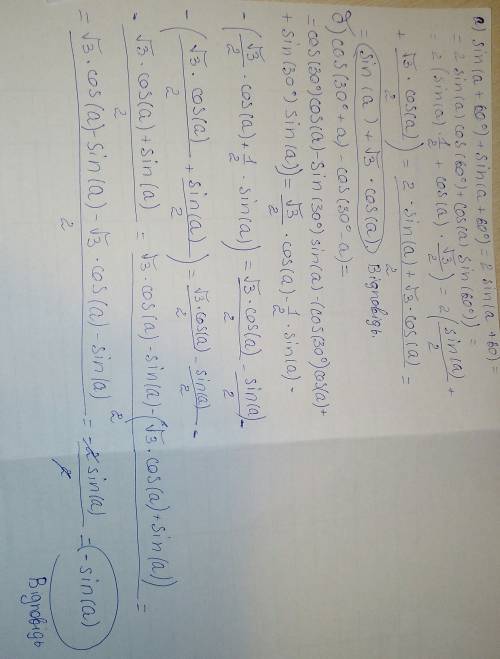 а) sin(a+60°)+sin(a+60°)=2 sin(a+60)=
=2 sin(a)cos(60°)+cos(a) sin(60°))=
=2(sin(a)·1/2+cos(a)·√3/2)=2(sin(a)/2+
+√3·cos(a)/2)=2·sin(a)+√3·cos(a)/2=
=sin(a)+√3·cos(a)) Відповідь.
б) cos(30°+a)-cos(30°-a)=
=cos(30°)cos(a)-sin(30°)sin(a)-(cos(30°)cos(a)+
+sin(30°)sin(a))=√3/2·cos(a)-1/2·sin(a)-
-(√3/2·cos(a)+1/2·sin(a))=√3·cos(a)/2-sin(a)/2-
-(√3·cos(a)/2+sin(a)/2)=√3·cos(a)/2-sin(a)/2-
-√3·cos(a)+sin(a)/2=√3·cos(a)-sin(a)-(√3·cos(a)+sin(a))/2=
=√3·cos(a)-sin(a)-√3·cos(a)-sin(a)/2=-2sin(a)/2=(-sin(a)
Відповідь